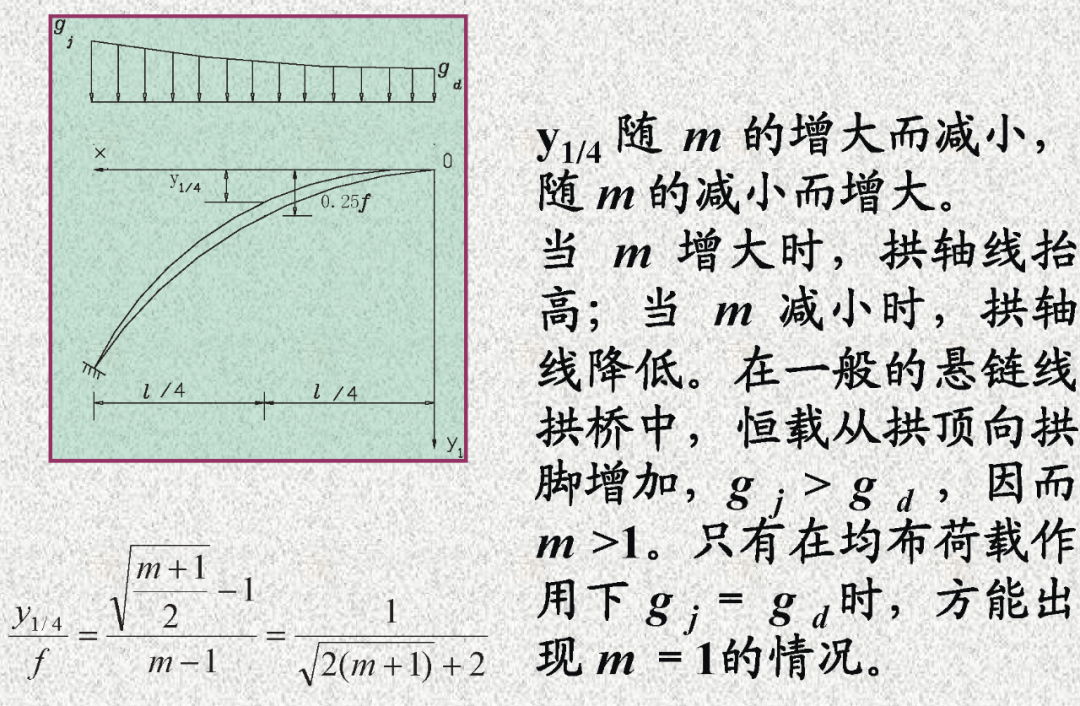 g j
g d
x
0
y1/4
0.25f
l/4
l/4
y1
y1/4 随 m 的增大而减小，
随 m 的减小而增大。
当 m 增大时，拱轴线抬
高；当 m 减小时，拱轴
线降低。在一般的悬链线
拱桥中，恒载从拱顶向拱
脚增加，g j > g d ，因而
m >1。只有在均布荷载作
用下 g j = g d 时，方能出
现 m = 1的情况。
y1/4 / f = (√((m+1)/2) −1) / (m−1) = 1 / (√(2(m+1)) + 2)